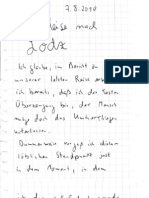 7.8.2010
Reise nach
Lodz
Ich glaube, im Bericht zu
unserer letzten Reise
ich bereits, daß ich der festen
Überzeugung bin, der Mensch
möge doch das
unterlassen.
Dummerweise vergaß ich diesen
löblichen Standpunkt just
in dem Moment, in dem